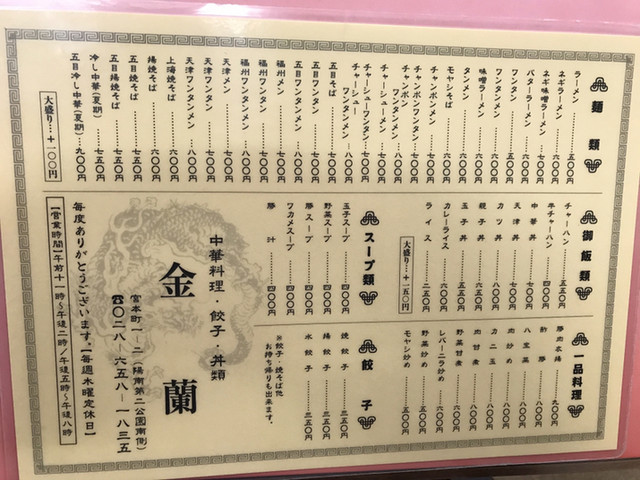 麺類
ラーメン……五〇〇円
ネギラーメン……六〇〇円
ネギ味噌ラーメン……七〇〇円
バターラーメン……六〇〇円
ワンタン……五〇〇円
ワンタンメン……六〇〇円
味噌ラーメン……六〇〇円
タンメン……六〇〇円
モヤシそば……六〇〇円
チャンポンメン……七〇〇円
チャンポンワンタン……七〇〇円
チャンポンワンタンメン……八〇〇円
チャーシューメン……七〇〇円
チャーシューワンタン……七〇〇円
チャーシューワンタンメン……八〇〇円
五目そば……七〇〇円
五目ワンタン……七〇〇円
五目ワンタンメン……八〇〇円
福州メン……七〇〇円
福州ワンタン……七〇〇円
福州ワンタンメン……八〇〇円
天津メン……七〇〇円
天津ワンタン……七〇〇円
天津ワンタンメン……八〇〇円
上海焼そば……六〇〇円
揚焼そば……六〇〇円
五目焼そば……七五〇円
五目揚焼そば……七五〇円
冷し中華(夏期)……七五〇円
五目冷し中華(夏期)……九〇〇円
大盛り…+一〇〇円
御飯類
チャーハン……五五〇円
半チャーハン……四〇〇円
中華丼……七〇〇円
天津丼……七〇〇円
カツ丼……八〇〇円
親子丼……六〇〇円
玉子丼……五五〇円
カレーライス……六〇〇円
ライス……二五〇円
大盛り…+一五〇円
スープ類
玉子スープ……四〇〇円
野菜スープ……四〇〇円
豚スープ……四〇〇円
ワカメスープ……四〇〇円
豚汁……四〇〇円
一品料理
豚肉唐揚……九〇〇円
酢豚……八〇〇円
八宝菜……八〇〇円
カニ玉……八〇〇円
肉炒め……八〇〇円
肉甘煮……八〇〇円
野菜甘煮……七〇〇円
レバーニラ炒め……六〇〇円
野菜炒め……五〇〇円
モヤシ炒め……五〇〇円
餃子
焼餃子……三五〇円
揚餃子……三五〇円
水餃子……三五〇円
※餃子・焼そば他
お持ち帰りも出来ます。
中華料理・餃子・丼類
金蘭
宮本町一-二(陽南第二公園南側)
☎〇二八-六五八-一八三五
毎度ありがとうございます。【毎週木曜定休日】
【営業時間】午前十一時~午後二時/午後五時~午後八時